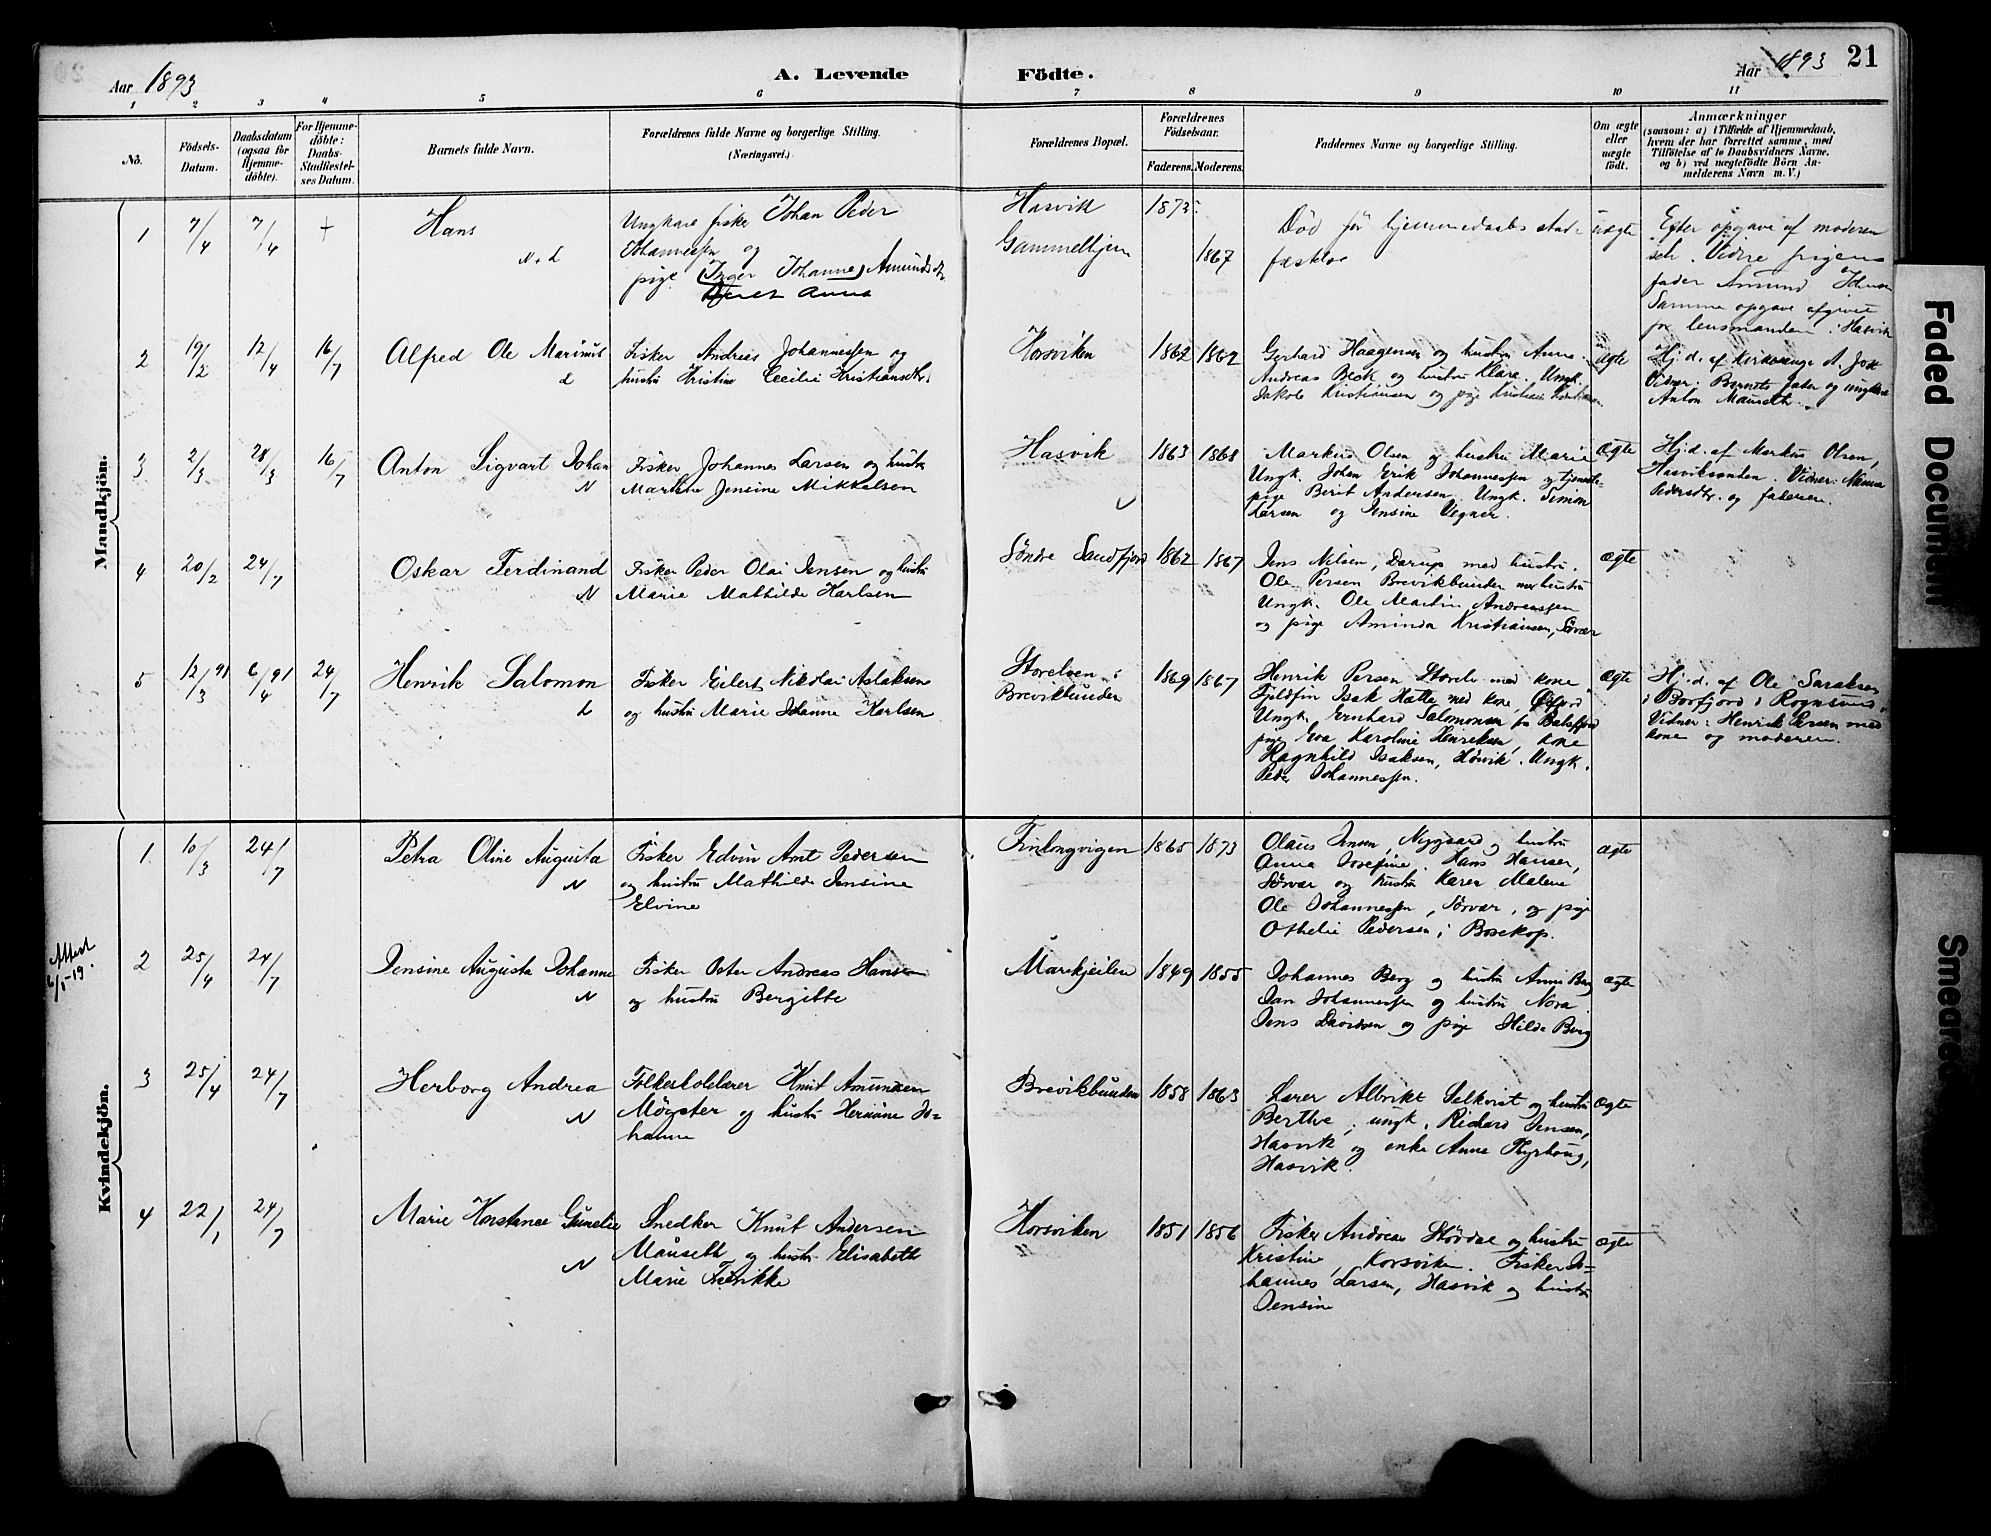 Aar 1893
A. Levende
Födte.
Aar 1893
21
1 2 3 4 5 6 7 8 9 10 11
Nô.
Födsels-
Datum.
Daabsdatum
(ogsaa för
Hjemme-
döbte).
For Hjemme-
döbte:
Daabs-
Stadfæstel-
ses Datum.
Barnets fulde Navn.
Forældrenes fulde Navne og borgerlige Stilling.
(Næringsvei.)
Forældrenes Bopæl.
Forældrenes
Födselsaar.
Faderens. Moderens.
Faddernes Navne og borgerlige Stilling.
Om ægte
eller
uægte
födt.
Anmærkninger
(saasom: a) i Tilfælde af Hjemmedaab,
hvem der har forrettet samme, med
Tilföielse af to Daabsvidners Navne.
og b) ved uægtefödte Börn An-
melderens Navn m. V.)
Mandkjön.
1 7/4 7/4 +
Hans
N. L
Ungkarl fisker Johan Peder
Johannessen og
pige (Inger Johanne) Amundsdtr
Hasvik
Gammelhjem
1873
1867
Död för hjemmedaabs stad-
fæstelse
uægte
Efter opgave af moderen
selv. Vidre pigens
fader Amund Johnsen
Samme opgave afgivet
for lensmanden i Hasvik
2 19/2 12/4 16/7
Alfred Ole Marinus
L
Fisker Andreas Johannessen og
hustru Kristine Cecilie Kristiansdtr.
Korsviken
1862 1862
Gerhard Haagensen og hustru Anne.
Andreas Beck og hustru Klara. Ungk.
Jakob Kristiansen og pige Kristine Kristiansen.
ægte
Hj.d. af Kirkesanger A. Jost
Vidner: Barnets fader og ungkarl
Anton Mauseth.
3 2/3 28/3 16/7
Anton Sigvart Johan
N
Fisker Johannes Larsen og hustru
Marthe Jensine Mikkelsen
Hasvik
1863 1868
Markus Olsen og hustru Marie
Ungk. Johan Erik Johannessen og tjeneste-
pige Berit Andersen. Ungk. Simon
Larsen og Jensine Vegner.
Ægte
Hj.d. af Markus Olsen,
Hasviksanden. Vidner: Nanna
Pedersdtr. og faderen.
4 20/2 24/7
Oskar Ferdinand
N
Fisker Peder Olai Jensen og hustru
Marie Mathilde Karlsen
Söndre Sandfjord
1862 1867
Jens Nilsen, Darup med hustru.
Ole Persen Brevikbunden med hustru
Ungk. Ole Martin Andreassen
og pige Aminda Kristiansen, Sörvær
ægte
5 12/3 91 6/4 91 24/7
Henrik Salomon
L
Fisker Eilert Nikolai Aslaksen
og hustru Marie Johanne Karlsen
Storelven i
Brevikbunden
1869 1867
Henrik Persen Storelv med kone
Fjeldfin Isak Hætta med kone, Öxfjord
Ungk. Bernhard Salomonsen fra Balsfjord
pige Eva Karoline Henriksen, kone
Ragnhild Isaksen, Hönvik. Ungk.
Peder Johannessen.
Ægte
Hj.d. af Ole Saraksen
i Borfjord i Rognsund.
Vidner: Henrik Persen med
kone og moderen.
Kvindekjön.
1 10/3 24/7
Petra Oline Augusta
N
Fisker Edvin Amt Pedersen
og hustru Mathilde Jensine
Elvine
Finkongvigen
1865 1873
Olaus Jensen, Nygaard og hustru
Anna Josefine. Hans Hansen,
Sörvær og hustru Karen Malene
Ole Johannessen, Sörvær, og pige
Othelie Pedersen i Bosekop.
ægte
Attest
6/5-19.
2 25/4 24/7
Jensine Augusta Johanne
N
Fisker Peter Andreas Hansen
og hustru Bergitte
Marekjeilen
1849 1855
Johannes Berg og hustru Anne Berg
Jan Johannessen og hustru Nora
Jens Davidsen og pige Hilda Berg
ægte
3 25/4 24/7
Herborg Andrea
N
Folkeskolelærer Knut Amundsen
Mögster og hustru Hermine Jo-
hanne
Brevikbunden
1858 1863
Lærer Albrikt Selkvist og hustru
Berthe, ungk. Richard Jensen,
Hasvik og enke Anna Thyrhoug,
Hasvik.
Ægte
4 22/1 24/7
Marie Konstance Gunelie
N
Snedker Knut Andersen
Mauseth og hustru Elisabeth
Marie Fredrikke
Korsviken
1851 1856
Fisker Andreas Stördal og hustru
Kristine, Korsviken. Fisker Jo-
hannes Larsen, Hasvik og hustru
Jensine
ægte
Faded Document
Smeared